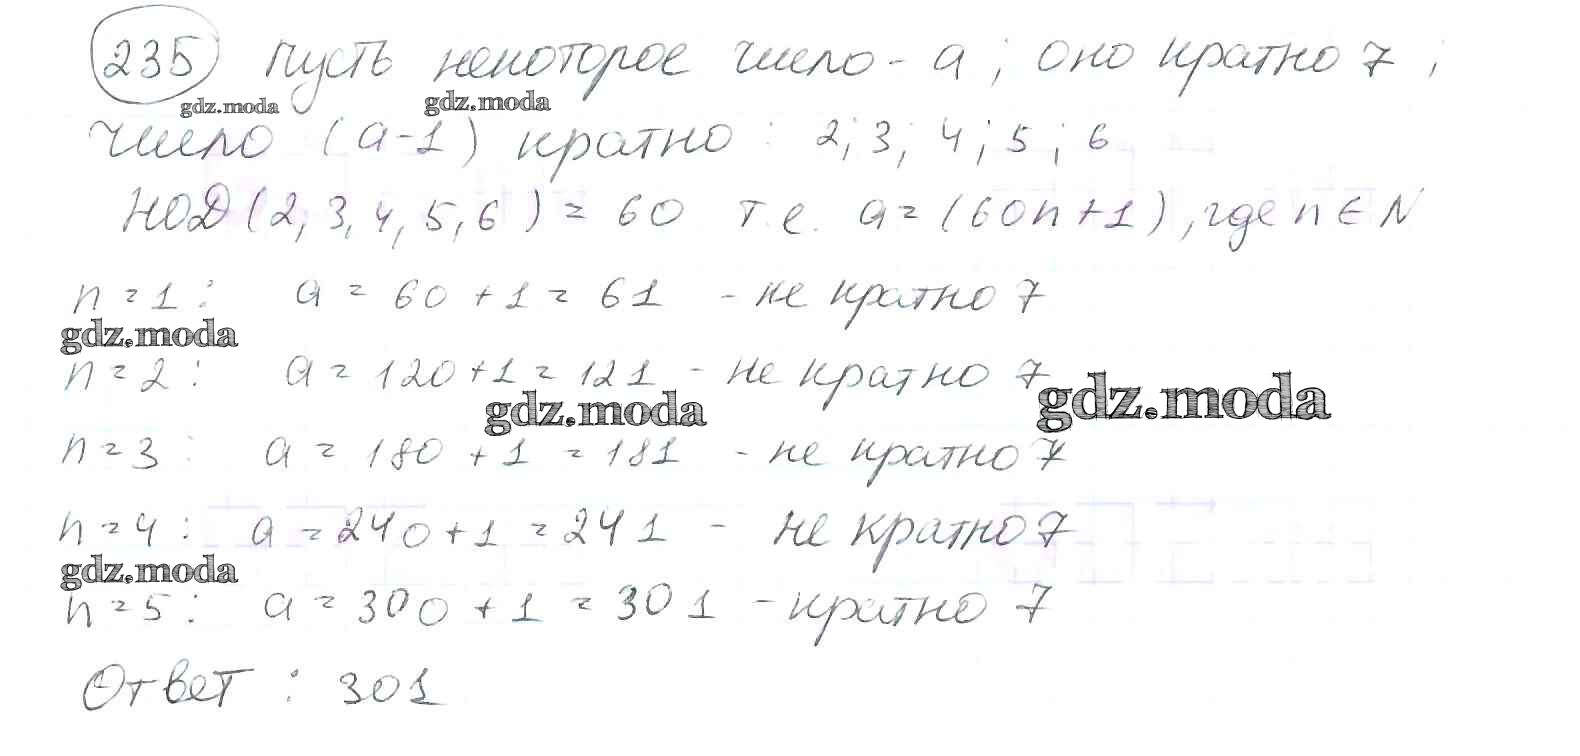 235 Пусть некоторое число - a; оно кратно 7;
gdz.moda gdz.moda
число (a-1) кратно: 2; 3; 4; 5; 6
НОД (2, 3, 4, 5, 6) = 60 т.е. a = (60n+1), где n ∈ N
n = 1: a = 60 + 1 = 61 - не кратно 7
gdz.moda
n = 2: a = 120 + 1 = 121 - не кратно 7
gdz.moda gdz.moda
n = 3: a = 180 + 1 = 181 - не кратно 7
n = 4: a = 240 + 1 = 241 - не кратно 7
gdz.moda
n = 5: a = 300 + 1 = 301 - кратно 7
Ответ: 301